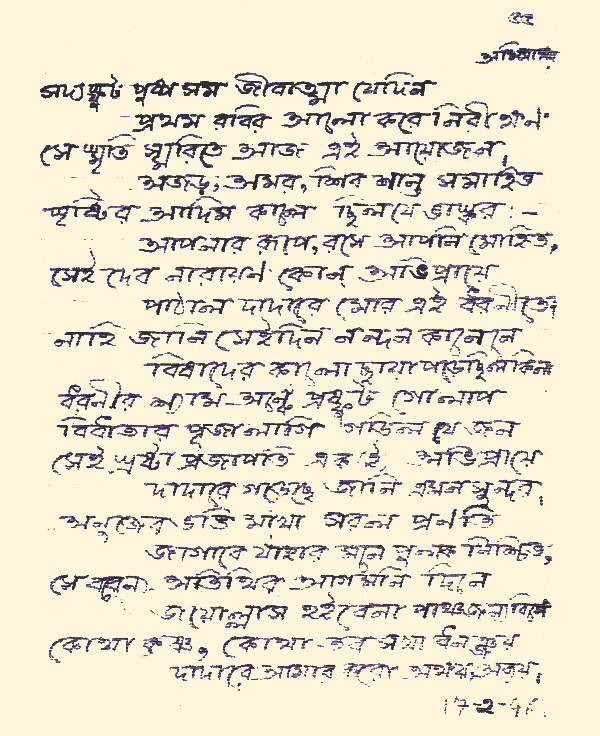 ৫৫
সদ্যস্ফুট পুষ্প সম জীবাত্মা যেদিন
প্রথম রবির আলো করে নিরীক্ষণ
সে স্মৃতি স্মরিতে আজ এই আয়োজন,
অজড়, অমর, শিব শান্ত সমাহিত
সৃষ্টির আদিম কালে ছিল যে ভাস্কর :–
আপনার রূপে, রসে আপনি মোহিত,
সেই দেব নারায়ণ কোন্ অভিপ্রায়ে
পাঠাল দাদারে মোর এই ধরণীতে;
নাহি জানি সেইদিন নন্দন কাননে
বিষাদের কালো ছায়া পড়েছিল কিনা
ধরণীর শ্যাম অঙ্কে প্রস্ফুট গোলাপ
বিধাতার পূজা লাগি গড়িল যে জন
সেই স্রষ্টা প্রজাপতি একই অভিপ্রায়ে
দাদারে গড়েছে জানি এমন সুন্দর,
অনুজের ভক্তি মাখা সরল প্রণতি
জাগাবে যাঁহার মনে পুলক নিশ্চিত,
সে অতিথির আগমনি দিনে
জয়োল্লাস হইবেনা পাঞ্চজন্য
কোথা কৃষ্ণ, কোথা তব সখা ধনঞ্জয়
দাদারে আমার করো অক্ষয়, অজয়,
17-2-4